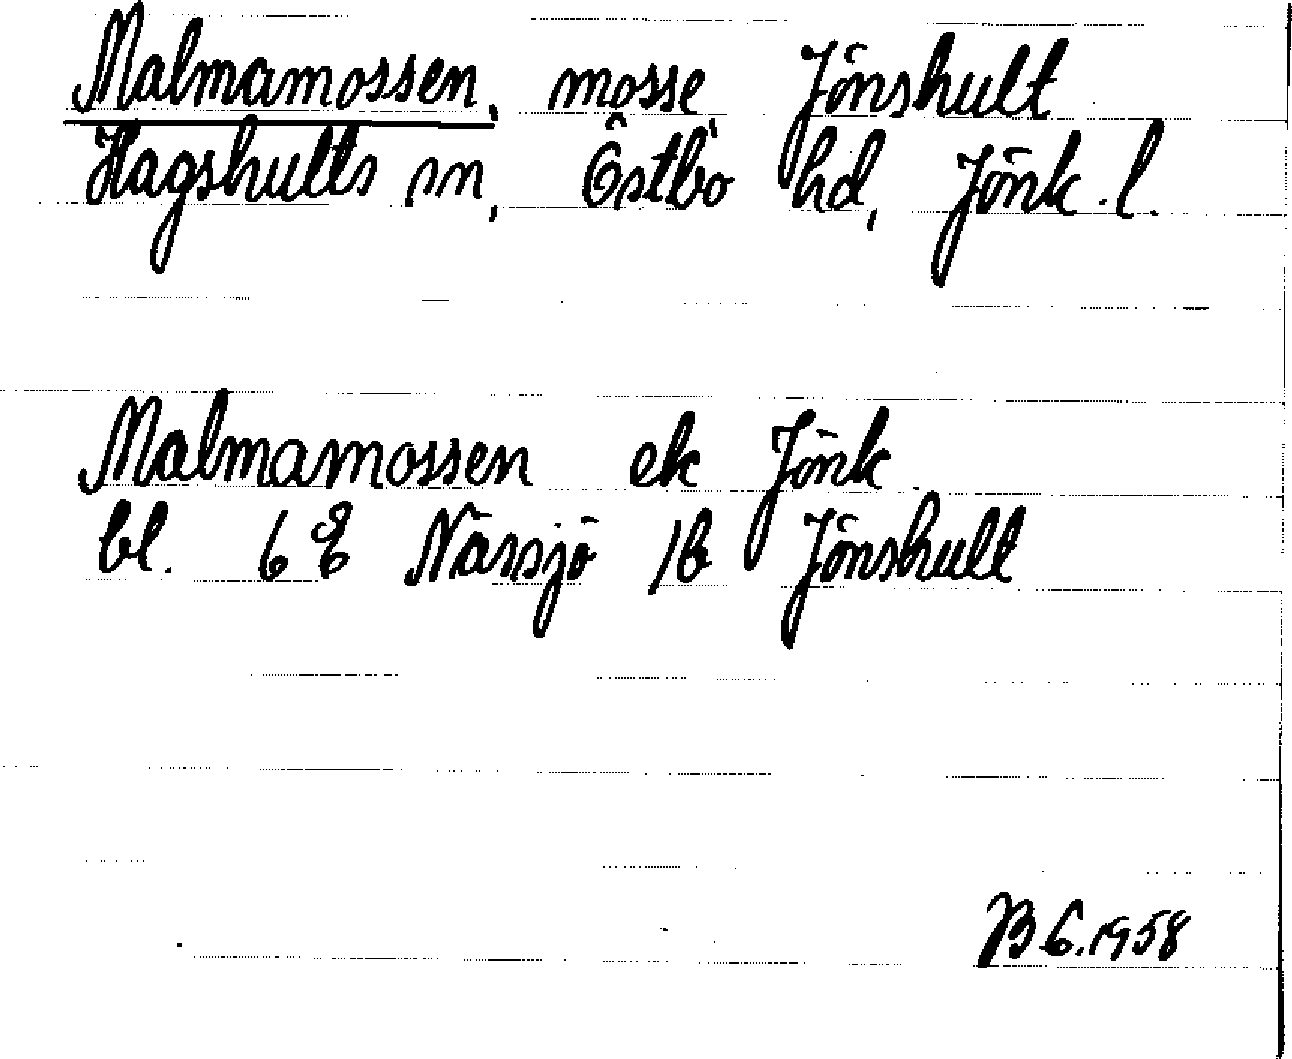 Malmamossen, mosse, Jönshult
Hagshults sn, Östbo hd, Jönk. l.
Malmamossen ek Jönk
bl. 6E Nässjö 1b Jönshult
B6.1958